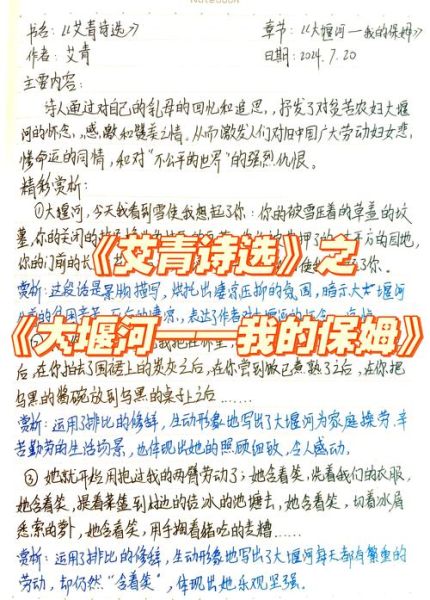 Notebook
书名:《艾青诗选》 章节:《大堰河—我的保姆》
作者:艾青 日期:2024.7.20
主要内容:
诗人通过对自己的乳母的回忆和追思,抒发了对贫苦农妇大堰
河的怀念、感激和赞美之情。从而激发人们对旧中国广大劳动妇女悲
惨命运的同情,和对"不公平的世界"的强烈仇恨。
精彩赏析:
①大堰河,今天我看到雪使我想起了你:你的被雪压着的草盖的坟
墓,你的关闭的
你的门前的长 了你。
《艾青诗选》之
赏析:这段话是景物描写,烘托出凄凉压抑的氛围,暗示大大堰河
《大堰河——我的保姆》
后,在你拍去了围裙上的炭灰之后,在你尝到饭已煮熟了之后,在你把
乌黑的酱碗放到乌黑的桌子上之后......
赏析:运用了排比的修辞,生动形象地写出了大堰河为家庭操劳、辛
苦勤劳的生活场景,也体现出她的照顾细致,令人感动。
③她就开始用抱过我的两臂劳动了;她含着笑,洗着我们的衣服,
她含着笑,提着菜篮到村边的结冰的池塘去,她含着笑,切着冰屑
悉索的萝卜,她含着笑,用手掏着猪吃的麦糟......
赏析:运用了排比的修辞,生动形象地写出了大堰河每天都有繁重的
劳动,却仍然"含着笑",体现出她乐观坚强。